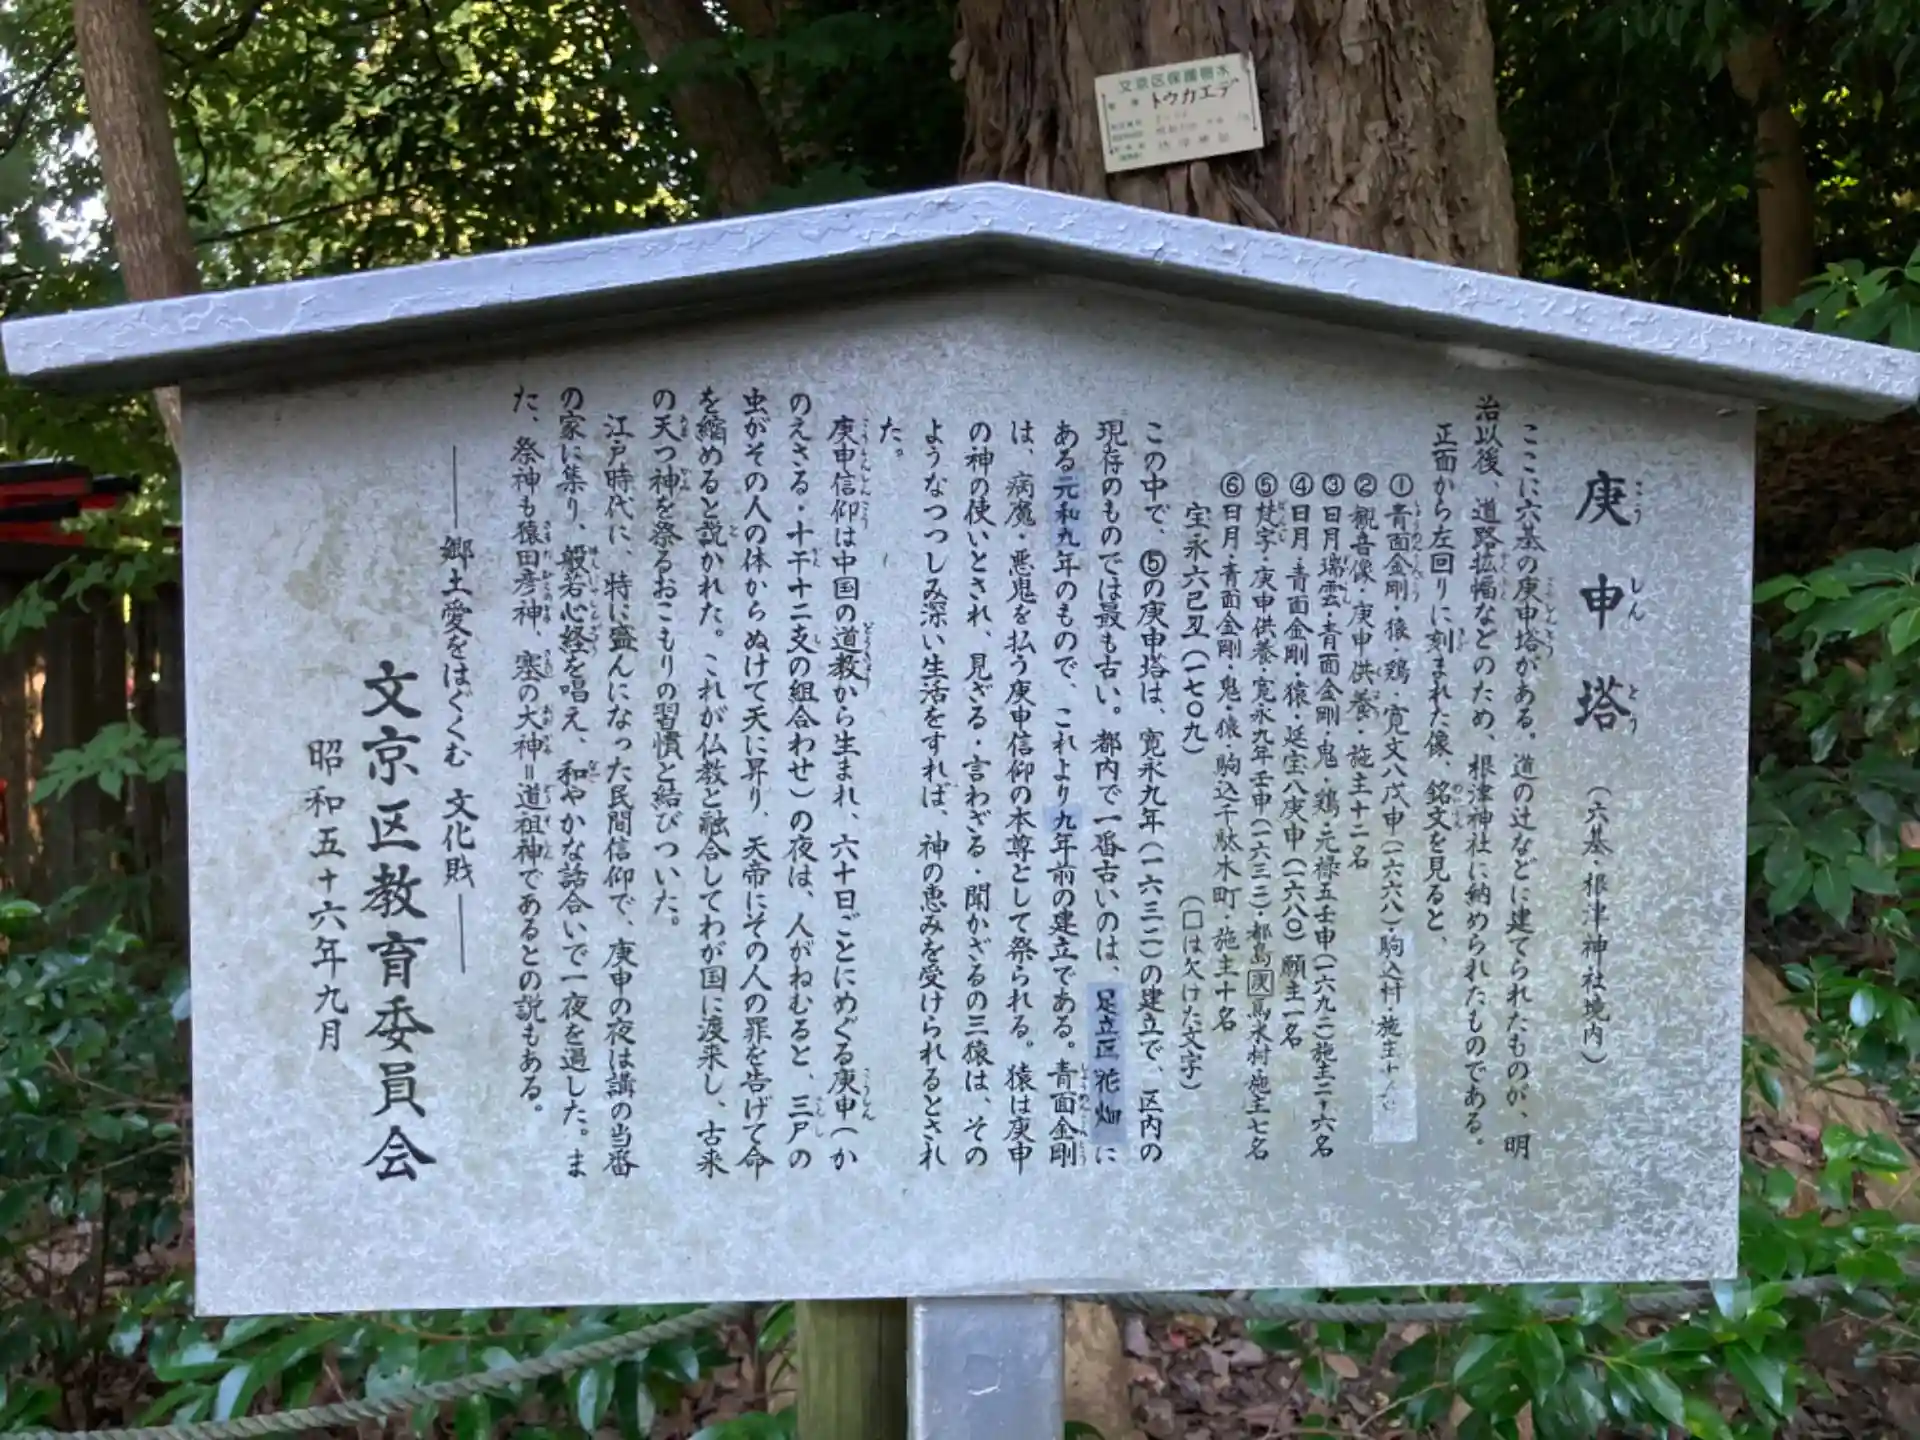 文京区保護樹木
トウカエデ
庚申塔 (六基・根津神社境内)
ここに六基の庚申塔がある。道の辻などに建てられたものが、明
治以後、道路拡幅などのため、根津神社に納められたものである。
正面から左回りに刻まれた像、銘文を見ると、
①青面金剛・猿・鶏・寛文八戊申(一六六八)・駒込村・施主
②観音像・庚申供養・施主十二名
③日月瑞雲・青面金剛・鬼・鶏・元禄五壬申(一六九二)施主二十六名
④日月・青面金剛・猿・延宝八庚申(一六八〇)願主一名
⑤梵字・庚申供養・寛永九年壬申(一六三二)・都島庚馬米村・施主七名
⑥日月・青面金剛・鬼・猿・駒込千駄木町・施主十名
宝永六己丑(一七〇九)
(□は欠けた文字)
この中で、⑤の庚申塔は、寛永九年(一六三二)の建立で、区内の
現存のものでは最も古い。都内で一番古いのは、足立区花畑に
ある元和九年のもので、これより九年前の建立である。青面金剛
は、病魔・悪鬼を払う庚申信仰の本尊として祭られる。猿は庚申
の神の使いとされ、見ざる・言わざる・聞かざるの三猿は、その
ようなつつしみ深い生活をすれば、神の恵みを受けられるとされ
た。
庚申信仰は中国の道教から生まれ、六十日ごとにめぐる庚申(か
のえさる・十干十二支の組合わせ)の夜は、人がねむると、三尸の
虫がその人の体からぬけて天に昇り、天帝にその人の罪を告げて命
を縮めると説かれた。これが仏教と融合してわが国に渡来し、古来
の天つ神を祭るおこもりの習慣と結びついた。
江戸時代に、特に盛んになった民間信仰で、庚申の夜は講の当番
の家に集り、般若心経を唱え、和やかな話合いで一夜を過した。ま
た、祭神も猿田彦神、塞の大神=道祖神であるとの説もある。
——郷土愛をはぐくむ 文化財——
文京区教育委員会
昭和五十六年九月